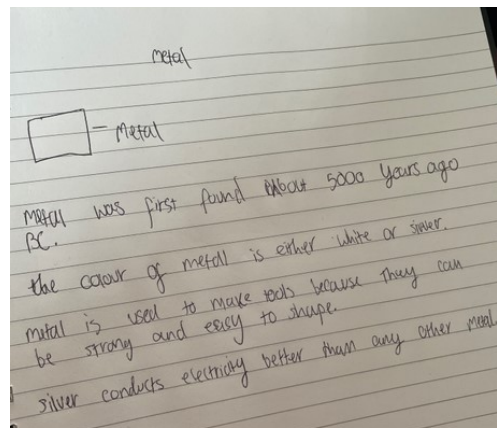 metal
– Metal
Metal was first found about 5000 years ago
BC.
the colour of metal is either white or silver.
metal is used to make tools because they can
be strong and easy to shape.
silver conducts electricity better than any other metal